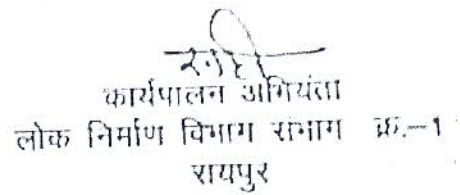 कार्यपालन अभियंता
लोक निर्माण विभाग संभाग क्र.-1
रायपुर